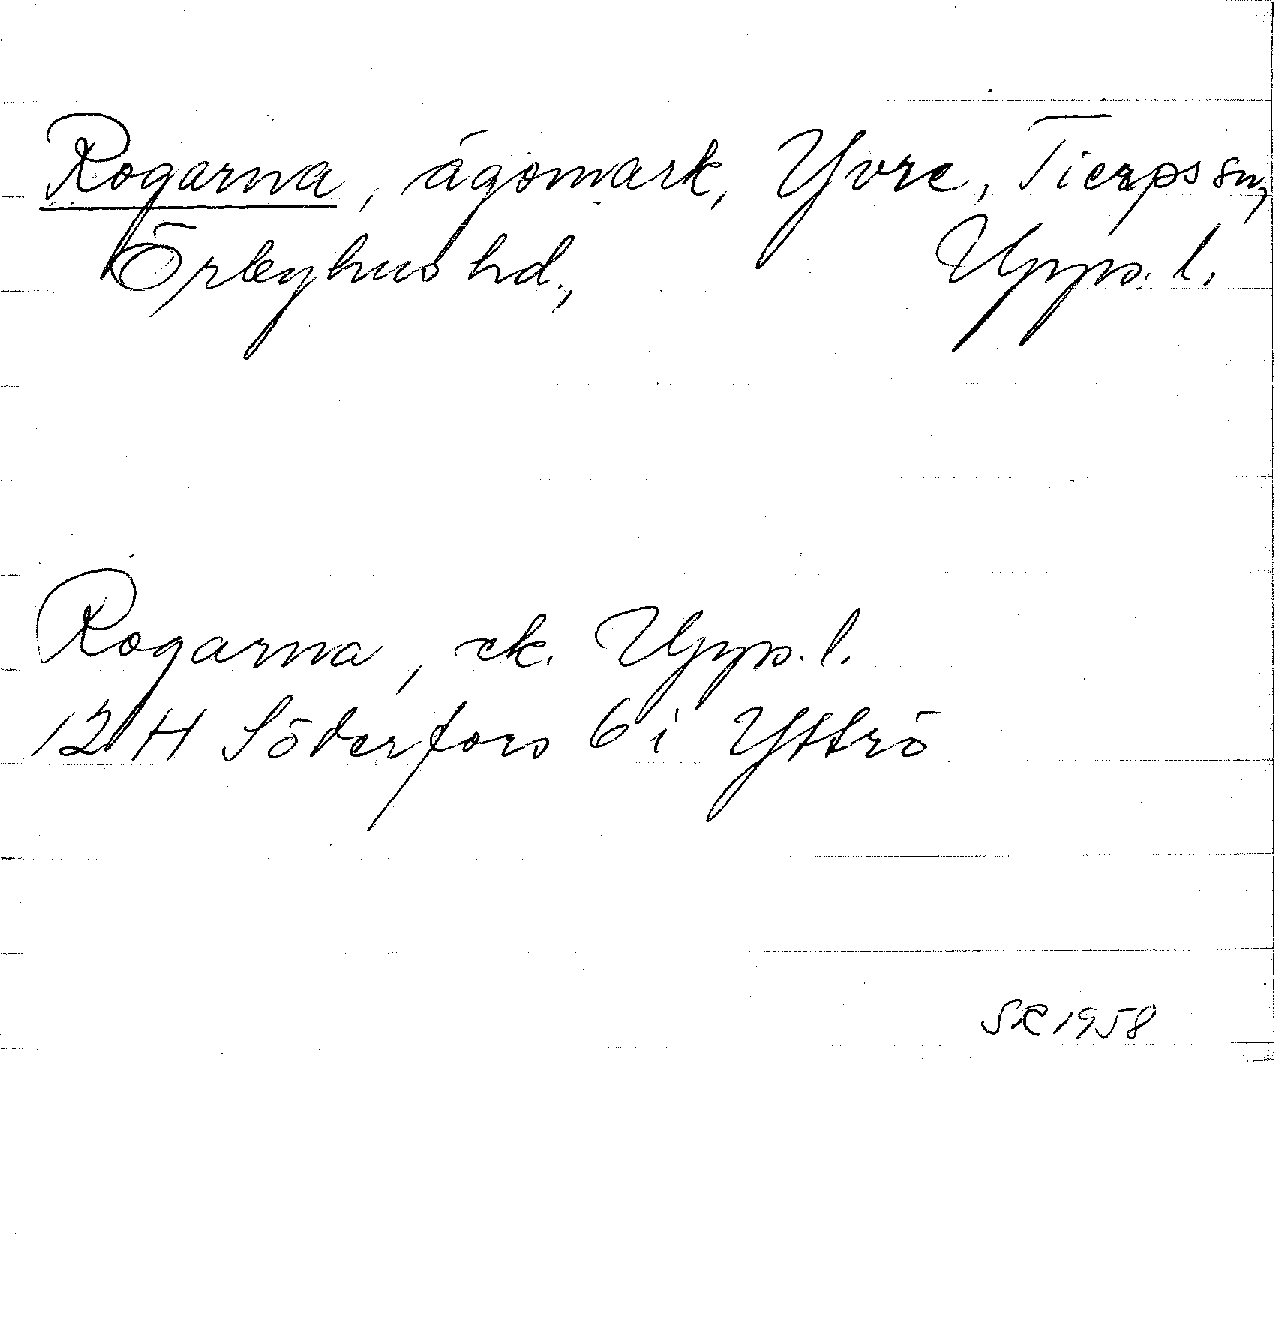 Rogarna, ägomark, Yvre, Tierps sn,
Örbyhus hd., Upps. l.
Rogarna, ek. Upps. l.
12 H Söderfors 6 i Yttrö
SR 1958